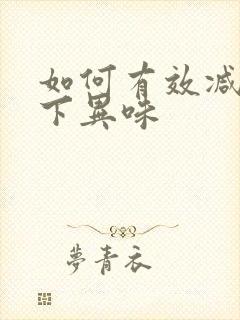 如何有效减
下異味
夢青衣